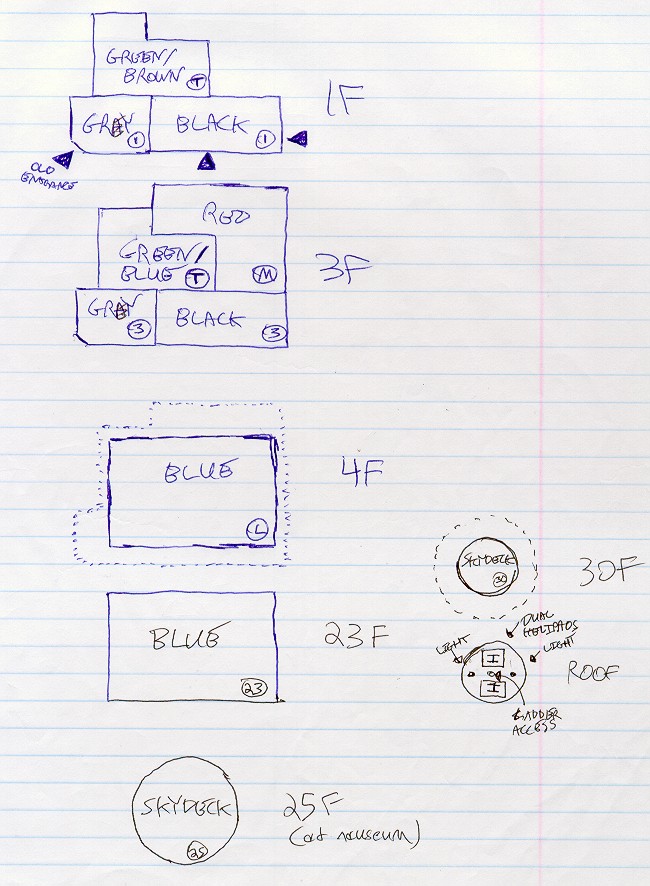 GREEN/
BROWN T
1F
GRAY 1
BLACK 1
OLD
ENTRANCE
RED
GREEN/
BLUE T
M
3F
GRAY 3
BLACK 3
BLUE
4F
L
SKYDECK
30
30F
BLUE
23F
23
DUAL
HELIPADS
LIGHT
LIGHT
H
H
ROOF
LADDER
ACCESS
SKYDECK
25
25F
(art museum)